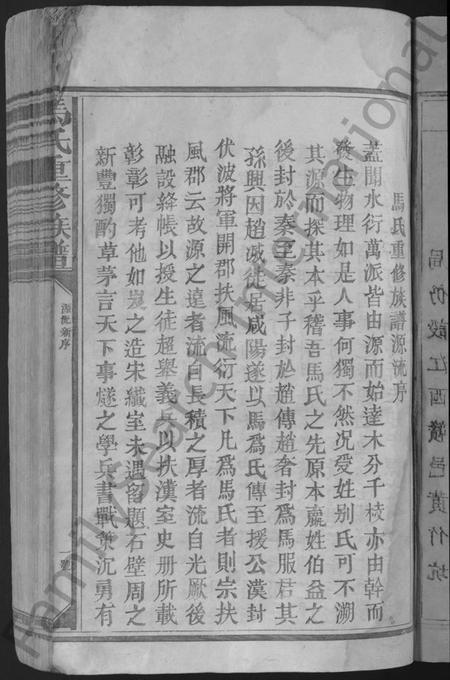 馬氏重修族譜源流序
蓋聞水衍萬派皆由源而始達木分千枝亦由幹而
發生物理如是人事何獨不然况受姓别氏可不溯
其源而探其本乎稽吾馬氏之先原本嬴姓伯益之
後封於秦至秦非子封於趙傳趙奢封爲馬服君其
孫興因趙滅徒居咸陽遂以馬爲氏傳至援公漢封
伏波將軍開郡扶風流衍天下凡爲馬氏者則宗扶
風郡云故源之遠者流自長積之厚者流自光厥後
融設絳帳以授生徒超舉義兵以扶漢室史册所載
彰彰可考他如岌之造宋纖室未遇留題石壁周之
新豐獨酌草茅言天下事燧之學兵書戰策沉勇有
馬氏重修族譜
源流新序
一號
局仍設江西瀲邑黄竹坑
FamilySearch International